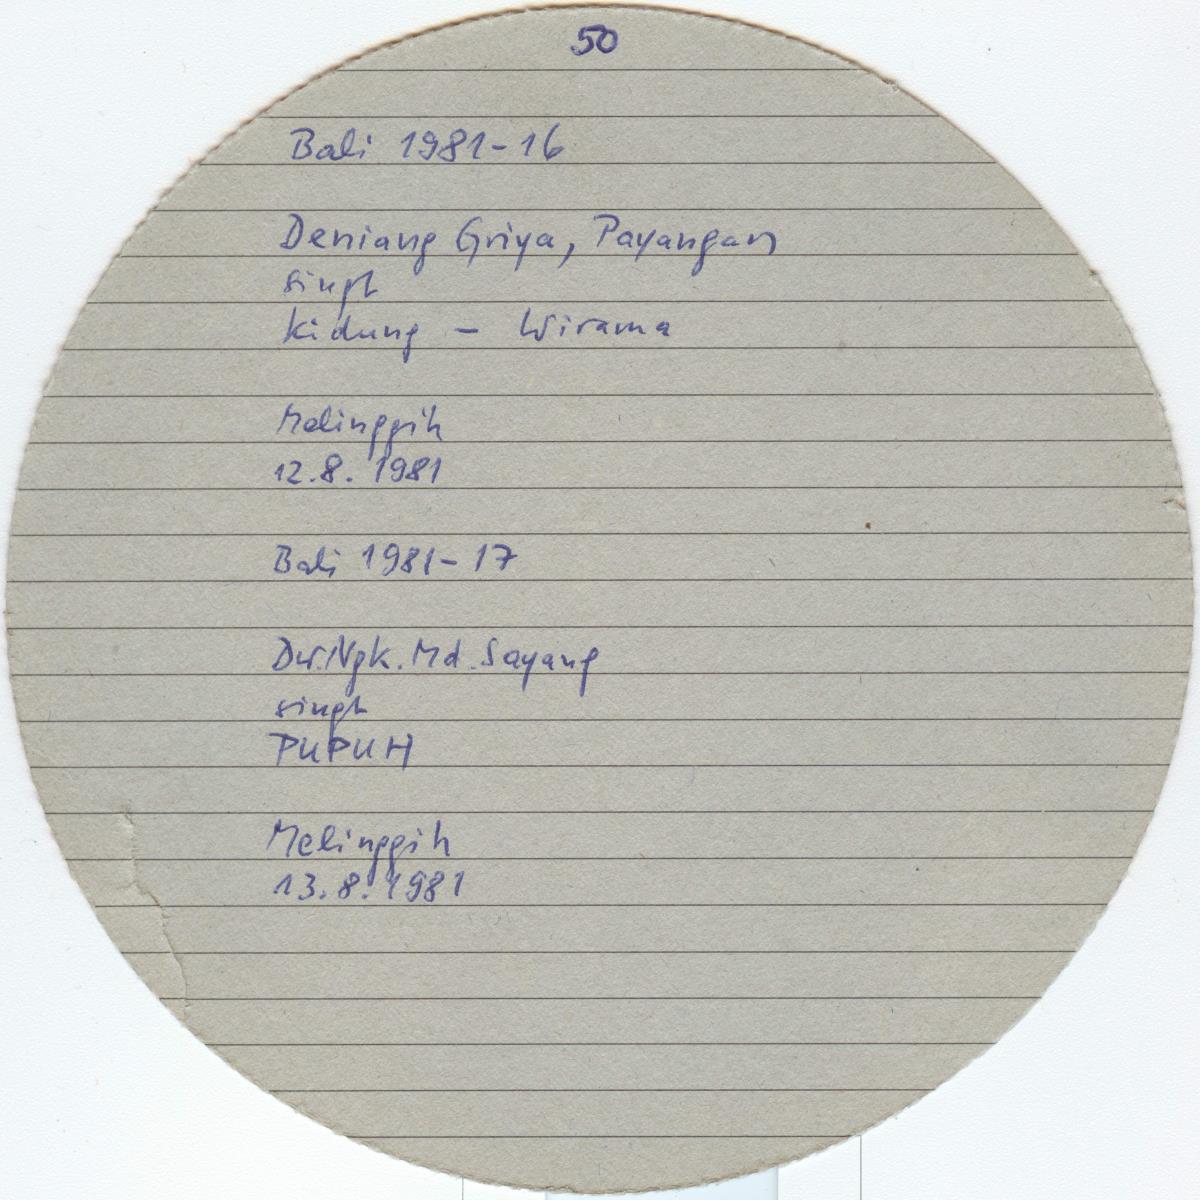 50
Bali 1981-16
Deniang Griya, Payangan
singt
Kidung - Wirama
Melinggih
12.8. 1981
Bali 1981-17
Dw.Ngk.Md.Sayang
singt
PUPUH
Melinggih
13.8.1981